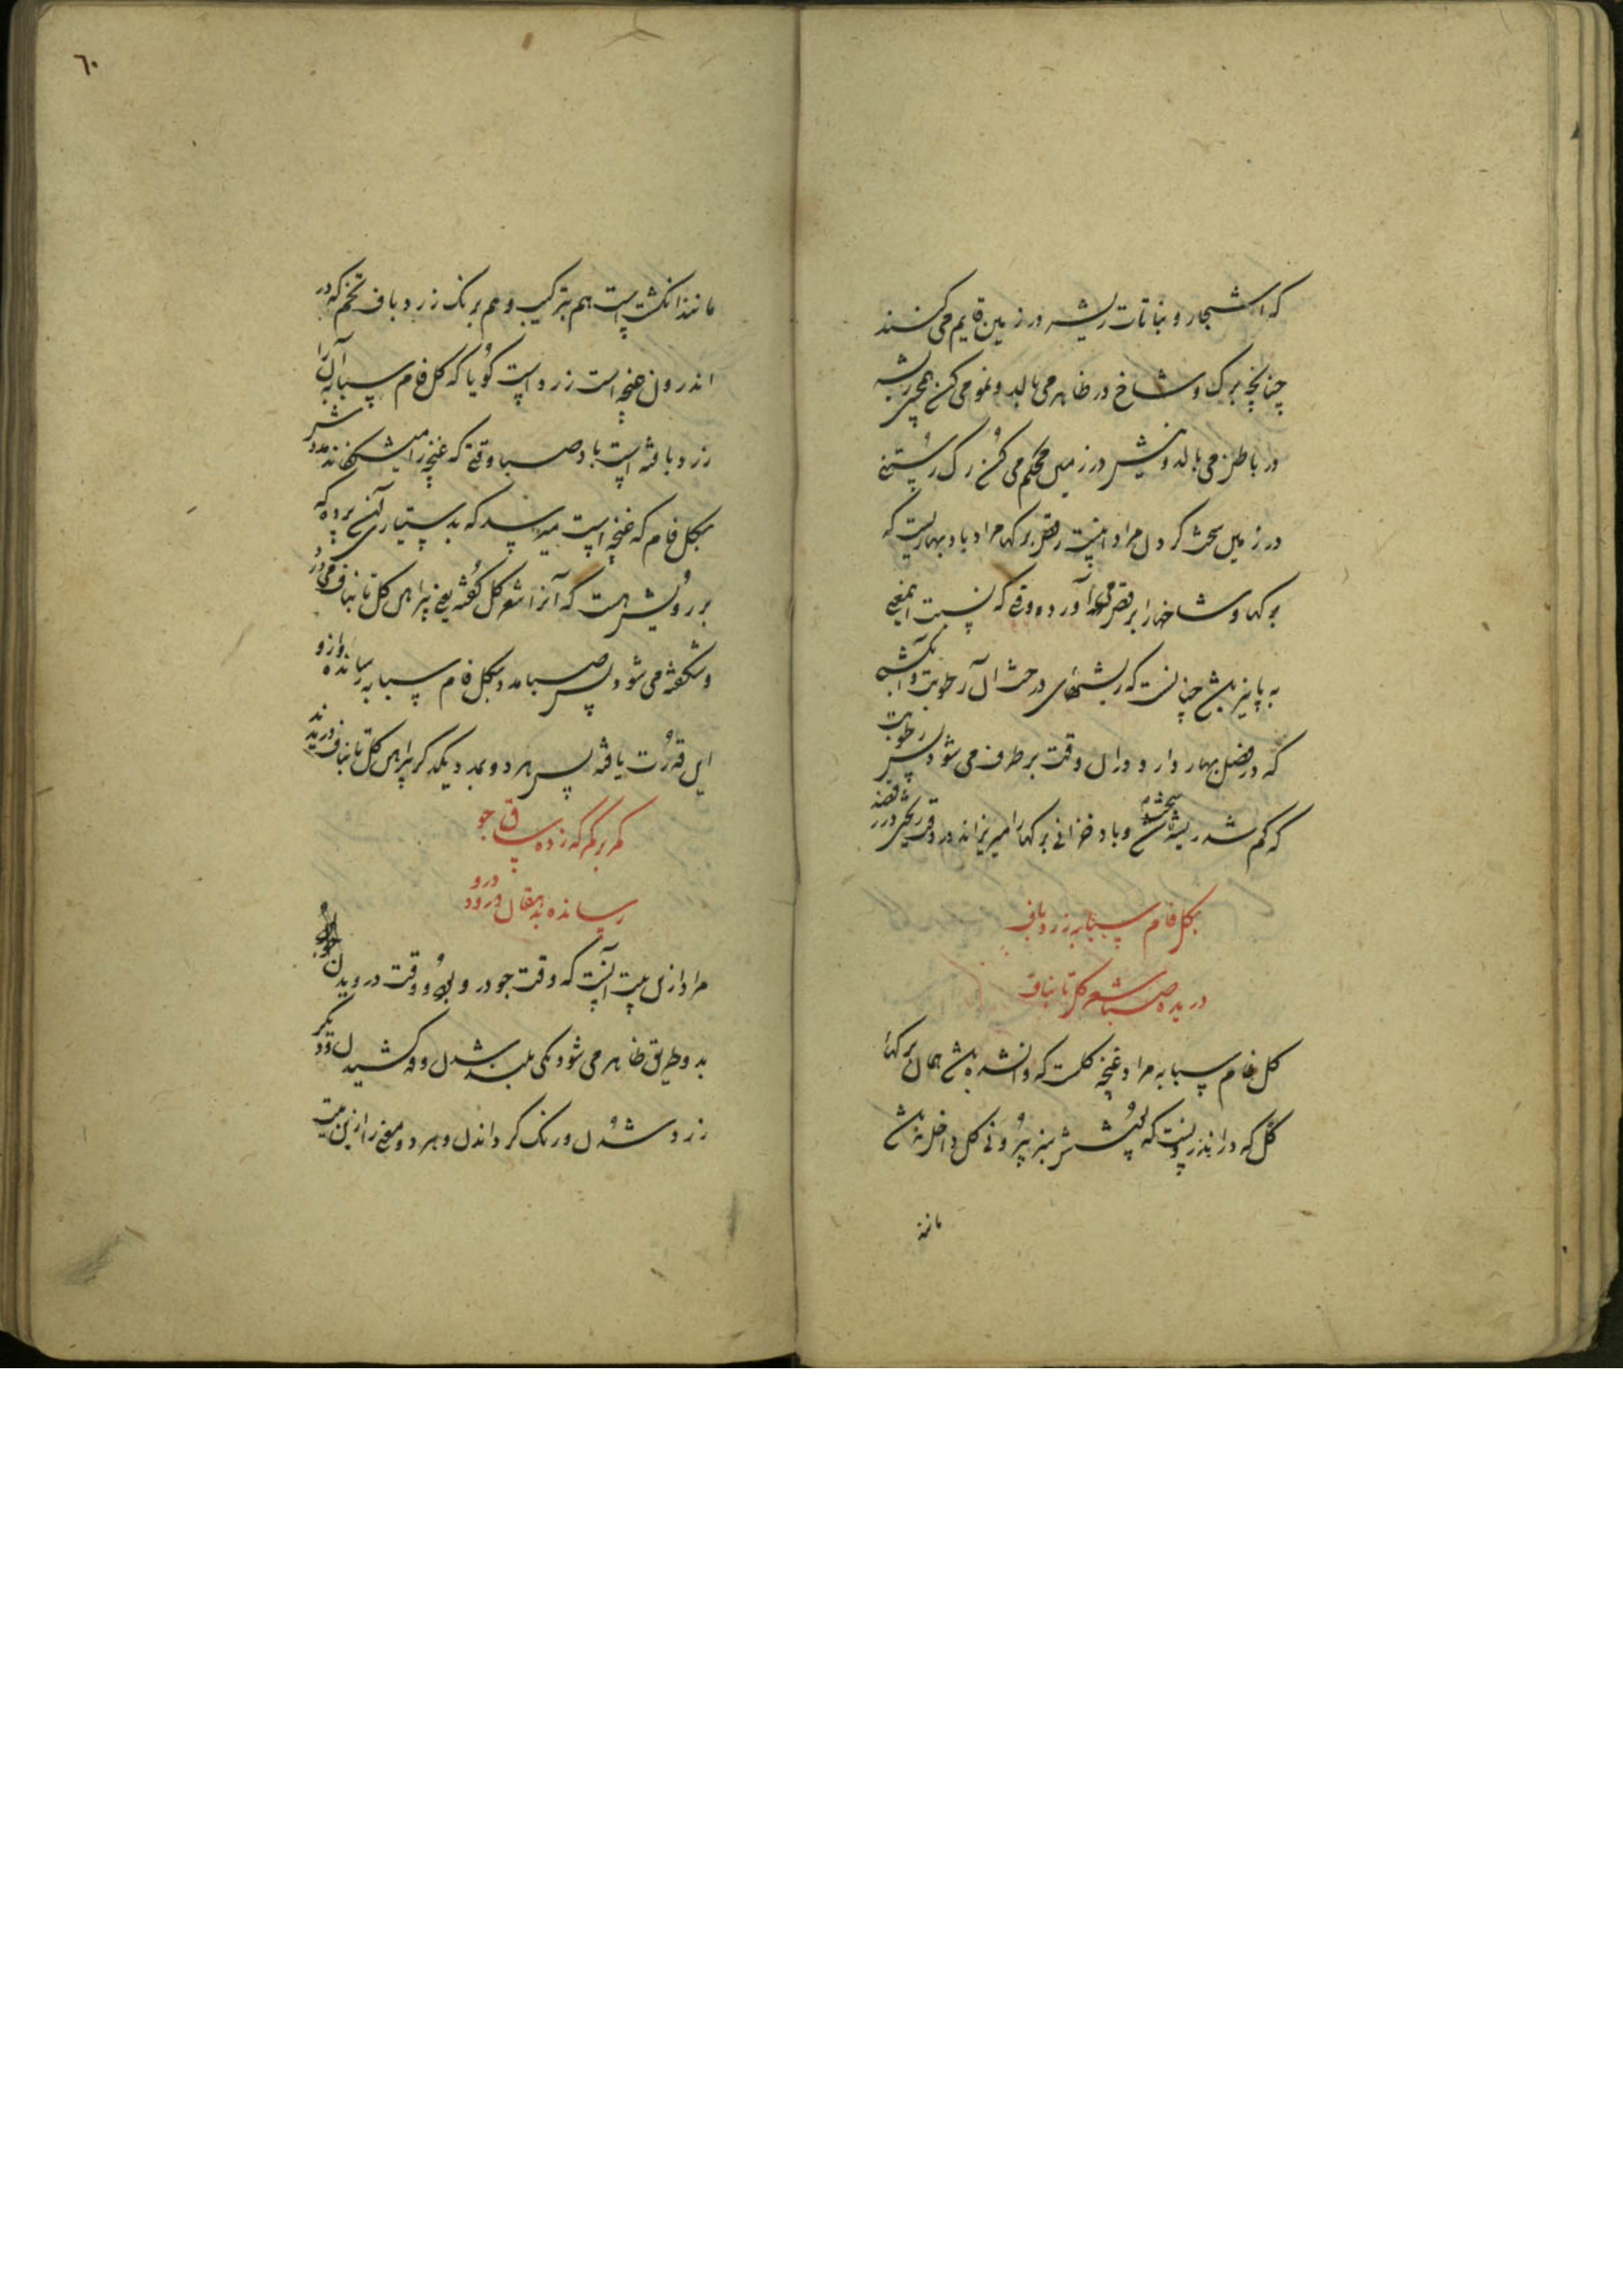 که اشجار و نباتات ریشه در زمین قایم می کنند
چنانچه برک و شاخ در ظاهر می بالد و نمو می کند همچنین ریشه
در باطن می بالد و ریشه در زمین محکم می کند رک رستنی
در زمین سخت کردن مراد اینست رقص برکها مراد باد بهاریست که
برکها و شاخها را برقص می آورد و وقتی که نسبت اینمعنی
به پاییز باشد چنانست که ریشهای درخت آن رطوبت و
که در فصل بهار دارد در آن وقت برطرف می شود پس رطوبت
که کم شد ریشه سخت شد و باد خزانی برکها را میریزاند و در وقت ریختن در رقصند
بکل فام سبابه زرد باف
دریده صبا شعر کل تا بناف
کل فام سبابه مراد غنچه کلست که وا نشده باشد همان برکهای
کل که در اندر پوست که پشتش سبز بیرونی کل داخل باشد
مانند
٦٠
مانند انکشت است هم بترکیب و هم برنک زرد باف تخم که در
اندرون غنچه است زرد است کویا که کل فام سبابه آن را
زرد بافته است باد صبا وقتی که غنچه را میشکفاند مددش
بکل فام که غنچه است میرسد که بدستیاری آن پرده که
بر رویش هست که آنرا شعر کل کفته یعنی پیراهن کل تا بناف می درد
و شکفته می شود پس صبا مدد بکل فام سبابه رسانده و از و
این قدرت یافته پس هر دو بمدد یکدیکر پیراهن کل تا بناف دریدند
کمر بر کمر که زده ساق جو
رسانده بدهقان درود درو
مراد ازین بیت آنست که وقت جو درو بود و وقت درویدن جو
بدو طریق ظاهر می شود یکی بلند شدن و قد کشیدن و دیکر
زرد شدن و رنک کرداندن و هر دو معنی را ازین بیت